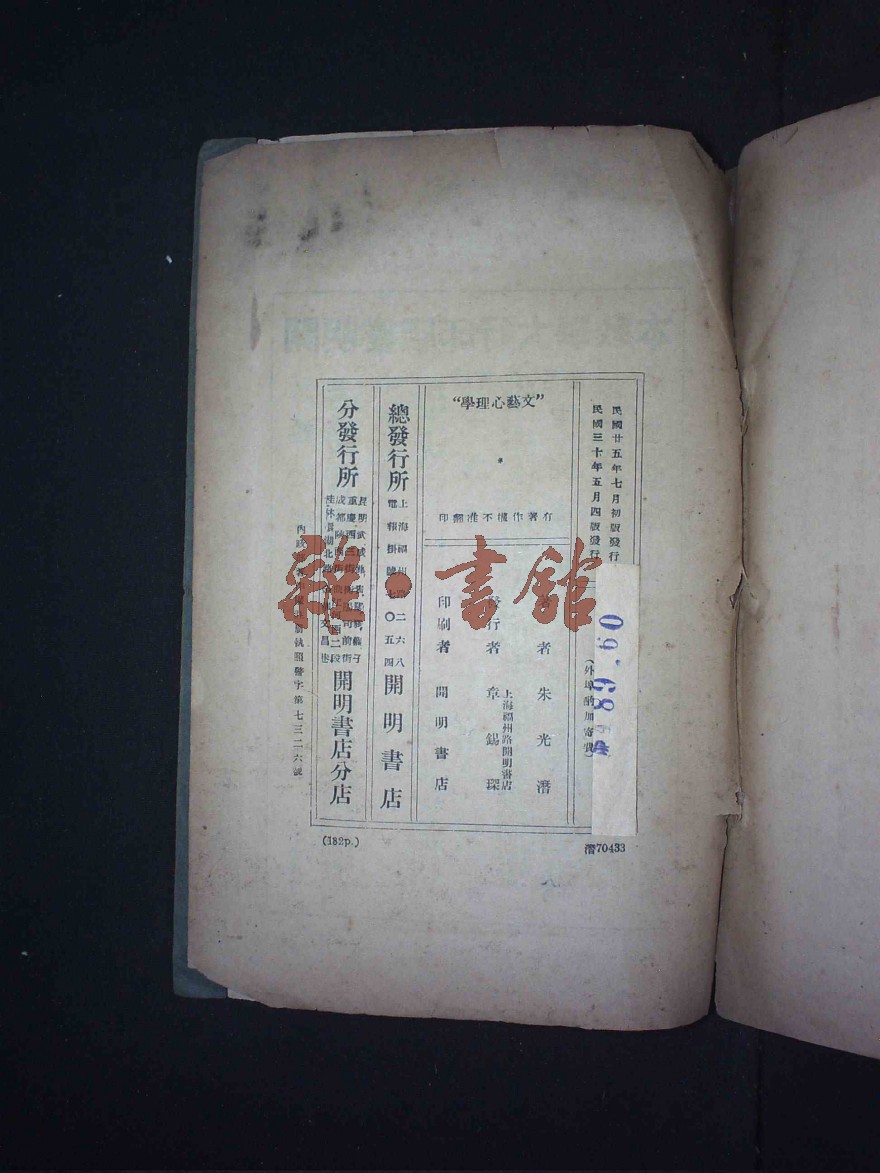 民國廿五年七月初版發行
民國三十年五月四版發行
(外埠酌加寄費)
“文藝心理學”
有著作權不准翻印
者 朱光潛
發行者 章錫琛
上海福州路開明書店
印刷者 開明書店
總發行所
上海福州路二六八
電報掛號七〇五四
開明書店
分發行所
開明書店分店
執照警字第七三二六號
(482p.)
潛70433
雜·書館